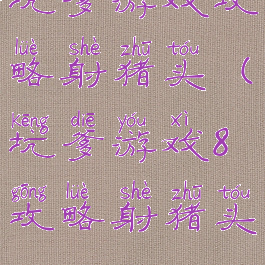 坑爹游戏攻
lüè shè zhū tóu
略射猪头（
kēng diē yóu xì
坑爹游戏8
gōng lüè shè zhū tóu
攻略射猪头